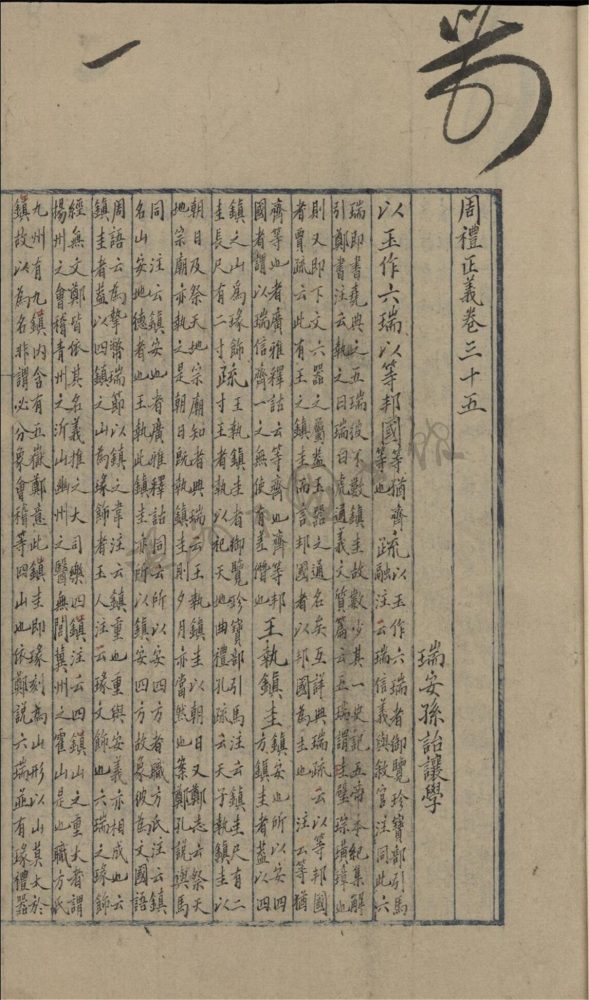 周禮正義卷三十五
瑞安孫詒讓學
以玉作六瑞以等邦國
等猶齊
等也
疏
以玉作六瑞者御覽珍寶部引馬
融注云瑞信義與敘官注同此六
瑞即書堯典之五瑞彼不數鎮圭故數少其一史記五帝本紀集解
引鄭書注云執之曰瑞白虎通義文質篇云五瑞謂圭璧琮璜璋也
則又即下文六器之屬蓋玉器之通名矣互詳典瑞疏云以等邦國
者賈疏云此有王之鎮圭而言邦國者以邦國為主也 注云等猶
齊等也者廣雅釋詁云等齊也齊等邦
國者謂以瑞信齊一之無使有差僭也
王執鎮圭
鎮安也所以安四
方鎮圭者蓋以四
鎮之山為瑑飾
圭長尺有二寸
疏
王執鎮圭者御覽珍寶部引馬注云鎮圭尺有二
寸王者執以祀天地曲禮孔疏云天子執鎮圭以
朝日及祭天地宗廟知者典瑞云王執鎮圭以朝日又鄭志云祭天
地宗廟亦執之是朝日既執鎮圭則夕月亦當然也案鄭孔說與馬
同 注云鎮安也者廣雅釋詁同云所以安四方者職方氏注云鎮
名山安地德者也王執此鎮圭亦所以鎮安四方故象彼為文國語
周語云為摯幣瑞節以鎮之韋注云鎮重也重與安義亦相成也云
鎮圭者蓋以四鎮之山為瑑飾者玉人注云瑑文飾也六瑞之瑑飾
經無文鄭皆依其名義推之大司樂四鎮注云四鎮山之重大者謂
揚州之會稽青州之沂山幽州之醫無閭冀州之霍山是也職方氏
九州有九鎮內含有五嶽鄭意此鎮圭即瑑刻為山形以山莫大於
鎮故以為名非謂必分象會稽等四山也依鄭說六瑞並有瑑禮器